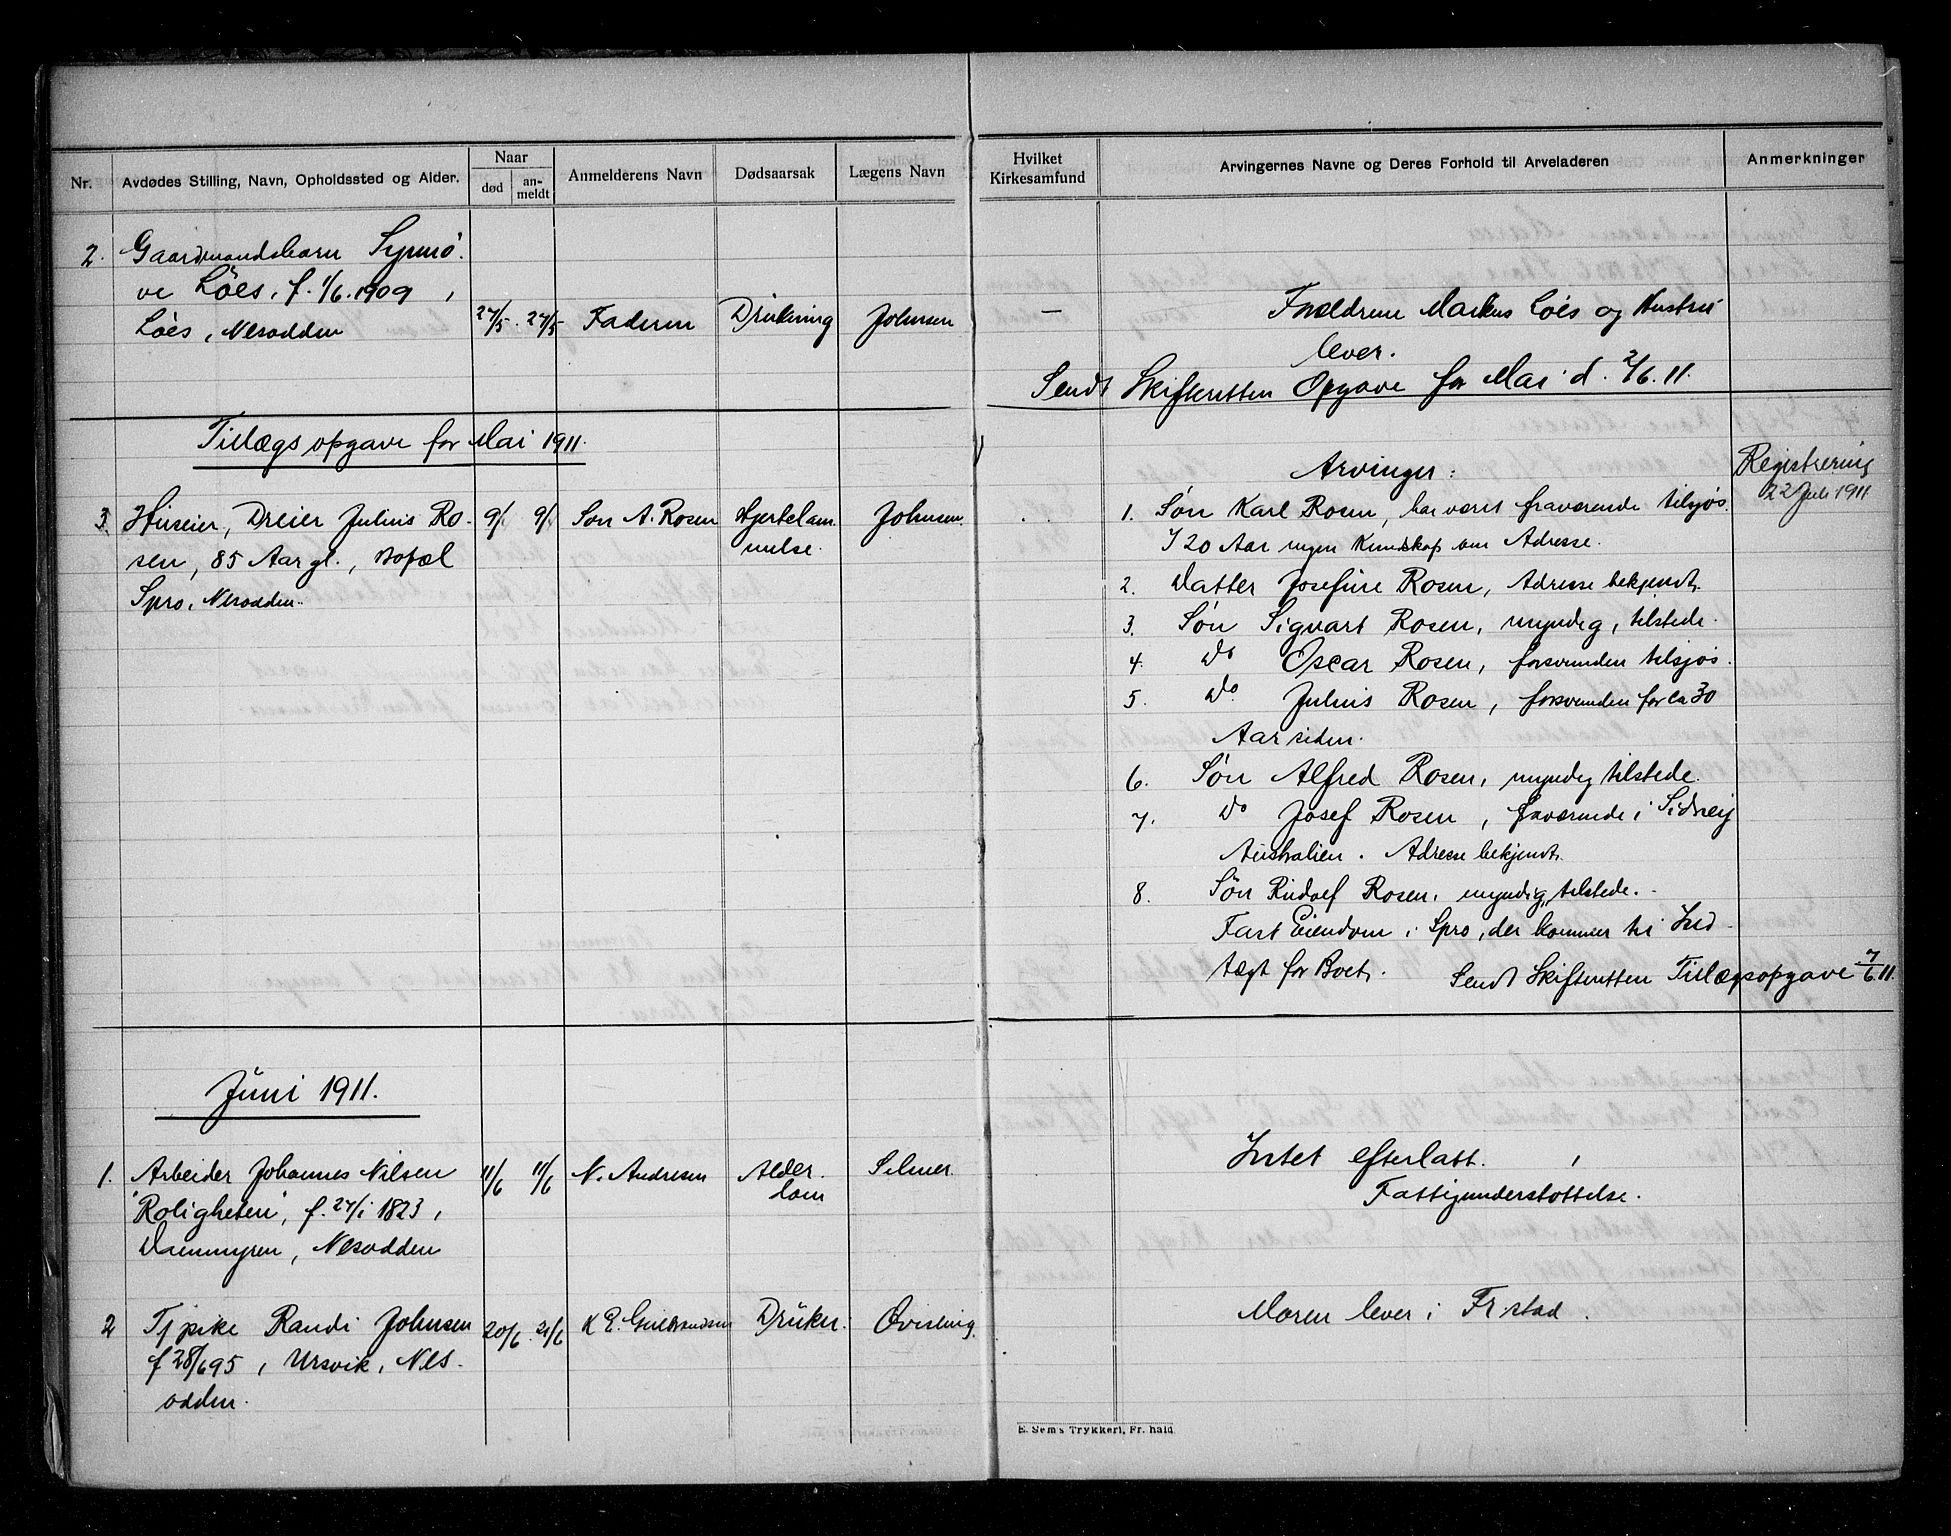 Nr.
Avdødes Stilling, Navn, Opholdssted og Alder.
Naar
død
an-
meldt
Anmelderens Navn
Dødsaarsak
Lægens Navn
Hvilket
Kirkesamfund
Arvingernes Navne og Deres Forhold til Arveladeren
Anmerkninger
2. Gaardmandsbarn Synnø-
ve Löes, f. 1/6.1909,
Löes, Nesodden 27/5. 27/5 Faderen Drukning Johnsen —
Forældrene Markus Löes og Hustru
lever.
Sendt Skifteretten Opgave for Mai d. 2/6.11.
Tillægsopgave for Mai 1911.
3. Huseier, Dreier Julius Ro-
sen, 85 Aar gl., Bopæl
Spro, Nesodden.
9/ 9/ Søn A. Rosen Hjertelam-
melse. Johnsen.
Arvinger:
Registrering
22 Juli 1911
1. Søn Karl Rosen, har været fraværende tilsjøs.
I 20 Aar ingen Kundskap om Adresse.
2. Datter Josefine Rosen, Adresse bekjendt.
3. Søn Sigvart Rosen, myndig, tilstede.
4. Do Oscar Rosen, forsvunden tilsjøs.
5. Do Julius Rosen, forsvunden for ca 30
Aar siden.
6. Søn Alfred Rosen, myndig tilstede.
7. Do Josef Rosen, fraværende i Sidneij
Australien. Adresse bekjendt.
8. Søn Rudolf Rosen, myndig, tilstede.
Fast Eiendom i Spro, der kommer til Ind-
tægt for Boet.
Sendt Skifteretten Tillægsopgave 7/6 11.
Juni 1911.
1. Arbeider Johannes Nilsen
"Roligheten", f. 27/1 1823,
Dammyren, Nesodden
11/6 11/6 N. Andresen Alder-
dom Selmer.
Intet efterlatt.
Fattigunderstøttelse.
2 Tj pike Randi Johnsen
f 28/6 95, Ursvik, Nes-
odden.
20/6 21/6 K E. Gulbrandsen Druknet. Qvisling.
Moren lever i Fr stad.
E. Sem's Trykkeri, Fr. hald